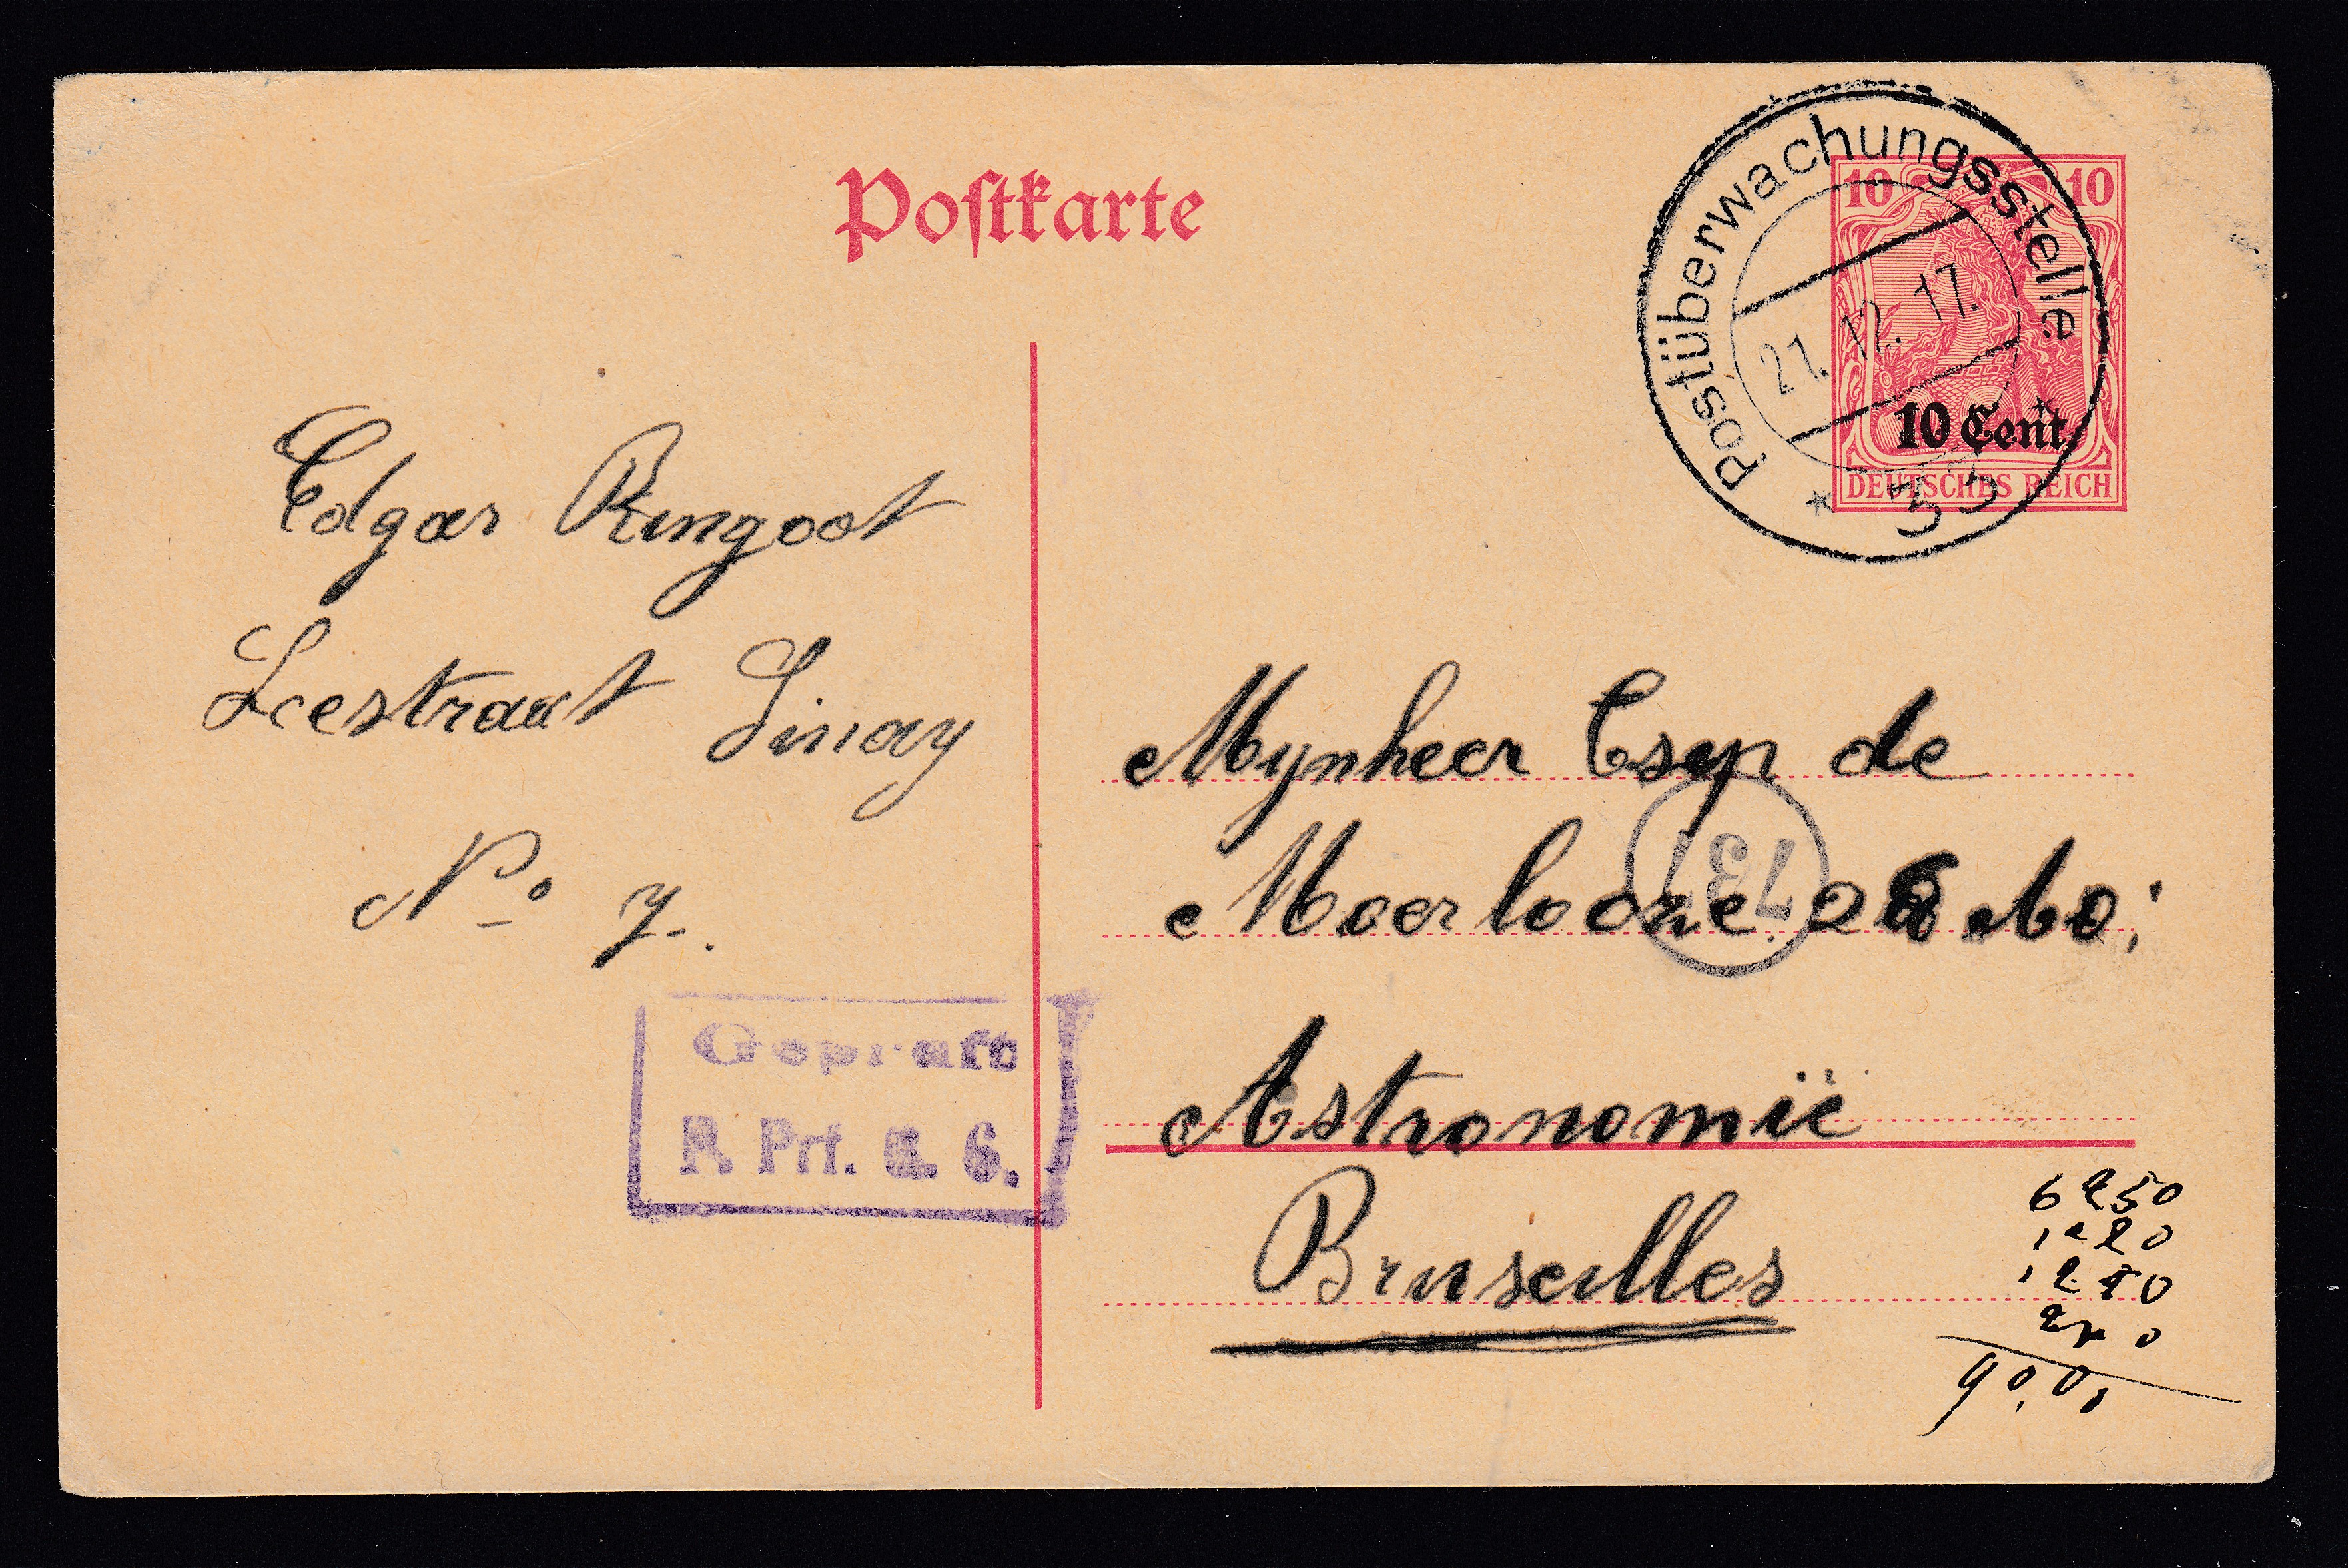 Postkarte
Postüberwachungsstelle
21. 12. 17.
* 33 *
10 10
10 Cent.
DEUTSCHES REICH
Edgar Ringoot
Leestraat Sinay
No 7.
Geprüft
P. Prf. d. 6.
Mynheer Esyp de
Maerloore 28
737
Astronomië
Bruseilles
6250
1220
90.00